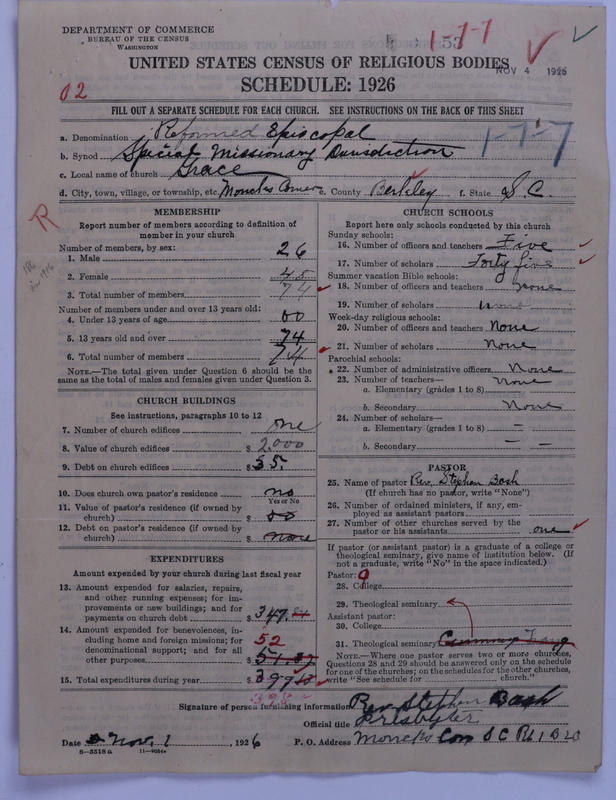 DEPARTMENT OF COMMERCE
BUREAU OF THE CENSUS
WASHINGTON
1-7-7
UNITED STATES CENSUS OF RELIGIOUS BODIES
NOV 4 1926
SCHEDULE: 1926
02
FILL OUT A SEPARATE SCHEDULE FOR EACH CHURCH. SEE INSTRUCTIONS ON THE BACK OF THIS SHEET
a. Denomination Reformed Episcopal
1-7-7
b. Synod Special Missionary Jurisdiction
c. Local name of church Grace
d. City, town, village, or township, etc. Moncks Corner e. County Berkley f. State S.C.
R
MEMBERSHIP
Report number of members according to definition of member in your church
Number of members, by sex:
1. Male 26
2. Female 48
3. Total number of members 74
Number of members under and over 13 years old:
4. Under 13 years of age 00
5. 13 years old and over 74
6. Total number of members 74
NOTE.—The total given under Question 6 should be the same as the total of males and females given under Question 3.
CHURCH BUILDINGS
See instructions, paragraphs 10 to 12
7. Number of church edifices one
8. Value of church edifices $ 2,000
9. Debt on church edifices $ 35.
10. Does church own pastor's residence no
Yes or No
11. Value of pastor's residence (if owned by church) $ 00
12. Debt on pastor's residence (if owned by church) $ none
EXPENDITURES
Amount expended by your church during last fiscal year
13. Amount expended for salaries, repairs, and other running expenses; for improvements or new buildings; and for payments on church debt $ 347.
14. Amount expended for benevolences, including home and foreign missions; for denominational support; and for all other purposes $ 52
15. Total expenditures during year $ 399
CHURCH SCHOOLS
Report here only schools conducted by this church
Sunday schools:
16. Number of officers and teachers Five
17. Number of scholars Forty five
Summer vacation Bible schools:
18. Number of officers and teachers none
19. Number of scholars none
Week-day religious schools:
20. Number of officers and teachers None
21. Number of scholars None
Parochial schools:
22. Number of administrative officers None
23. Number of teachers— None
a. Elementary (grades 1 to 8)
b. Secondary None
24. Number of scholars—
a. Elementary (grades 1 to 8) —
b. Secondary — —
PASTOR
25. Name of pastor Rev. Stephen Bash
(If church has no pastor, write "None")
26. Number of ordained ministers, if any, employed as assistant pastors
27. Number of other churches served by the pastor or his assistants one
If pastor (or assistant pastor) is a graduate of a college or theological seminary, give name of institution below. (If not a graduate, write "No" in the space indicated.)
Pastor:
28. College
29. Theological seminary
Assistant pastor:
30. College
31. Theological seminary
NOTE.—Where one pastor serves two or more churches, Questions 28 and 29 should be answered only on the schedule for one of the churches; on the schedules for the other churches, write "See schedule for church."
398
Signature of person furnishing information Rev. Stephen Bash
Official title Presbyter
Date Nov. 1, 1926 P. O. Address Moncks Cor S C
8-5518a 11-9054